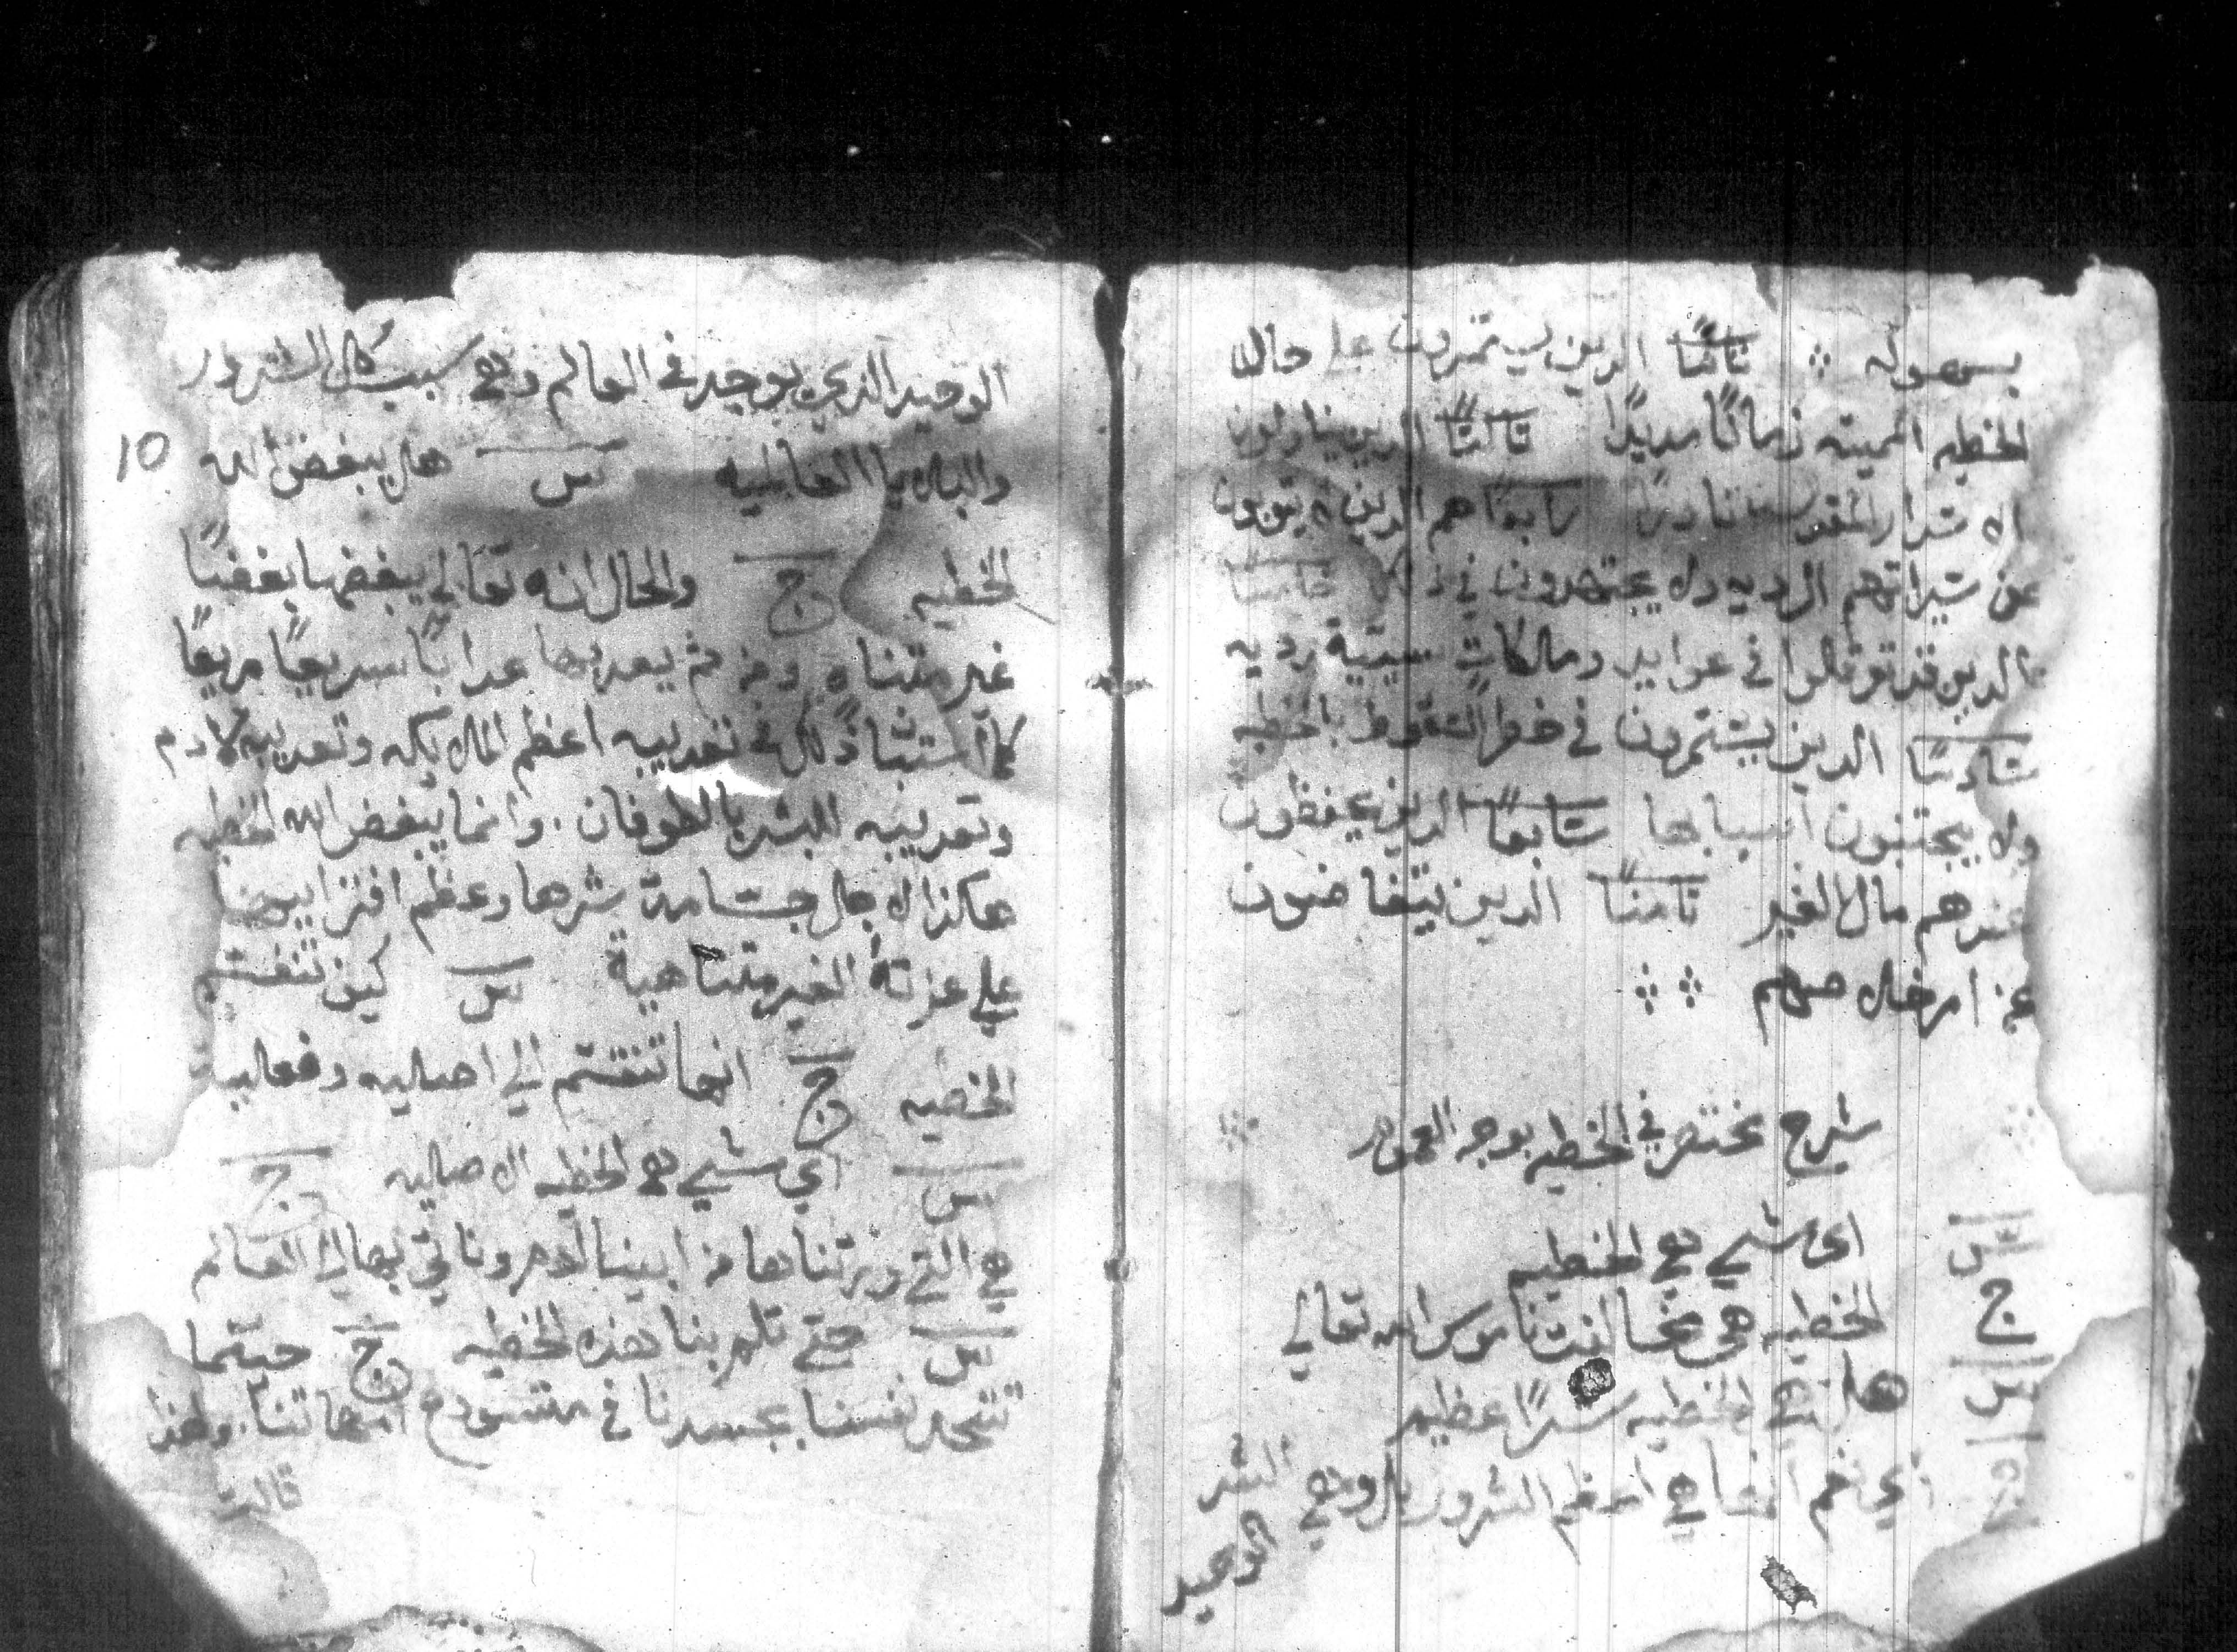 يسمعوله ثانيًا الدين يستمرون علي حال
الخطيه المميته زمانًا مديدًا ثالثًا الدين يتناولون
الاسرار المقدسه نادرًا رابعًا هم الدين لا يتوبون
عن سيراتهم الرديه ولا يجتهدون في ذلك خامسًا
الدين قد توغلوا في عوايد وملكات سيية رديه
سادسًا الدين يستمرون في خطر السقوط بالخطيه
ولا يجتنبون اسبابها سابعًا الدين يحفظون
عندهم مال الغير تامنًا الدين يتغاضون
عن اصلاح
شرح مختصر في الخطيه بوجه العموم
س اي شي هي الخطيه
ج الخطيه هي مخالفتنا الله تعالي
س هل هي الخطيه شرًا عظيم
ج اي نعم انها هي اعظم الشرور بل وهي الشر
الوحيد
الوحيد الذي يوجد في العالم وهي سبب كل الشرور
والبلايا العالميه س هل يبغض الله
10
الخطيه ج والحال انه تعالي يبغضها بغضًا
غير متناهٍ ومن ثم يعدبها عدابًا سريعًا مريعًا
كما استبان ذلك في تعديبه اعظم الملايكه وتعديبه لادم
وتعديبه البشر بالطوفان. وانما يبغض الله الخطيه
هاكذا لاجل جسامة شرها وعظم افترايها
علي عزته الغير متناهية س كيف تنقسم
الخطيه ج انها تنقسم الي اصليه وفعليه
س اي شي هي الخطيه الاصليه ج
هي التي ورتناها من ابينا ادم وناتي بها الي العالم
س متي تلم بنا هذه الخطيه ج حينما
تتحد نفسنا بجسدنا في مستودع امهاتنا. ولهذا
قالت